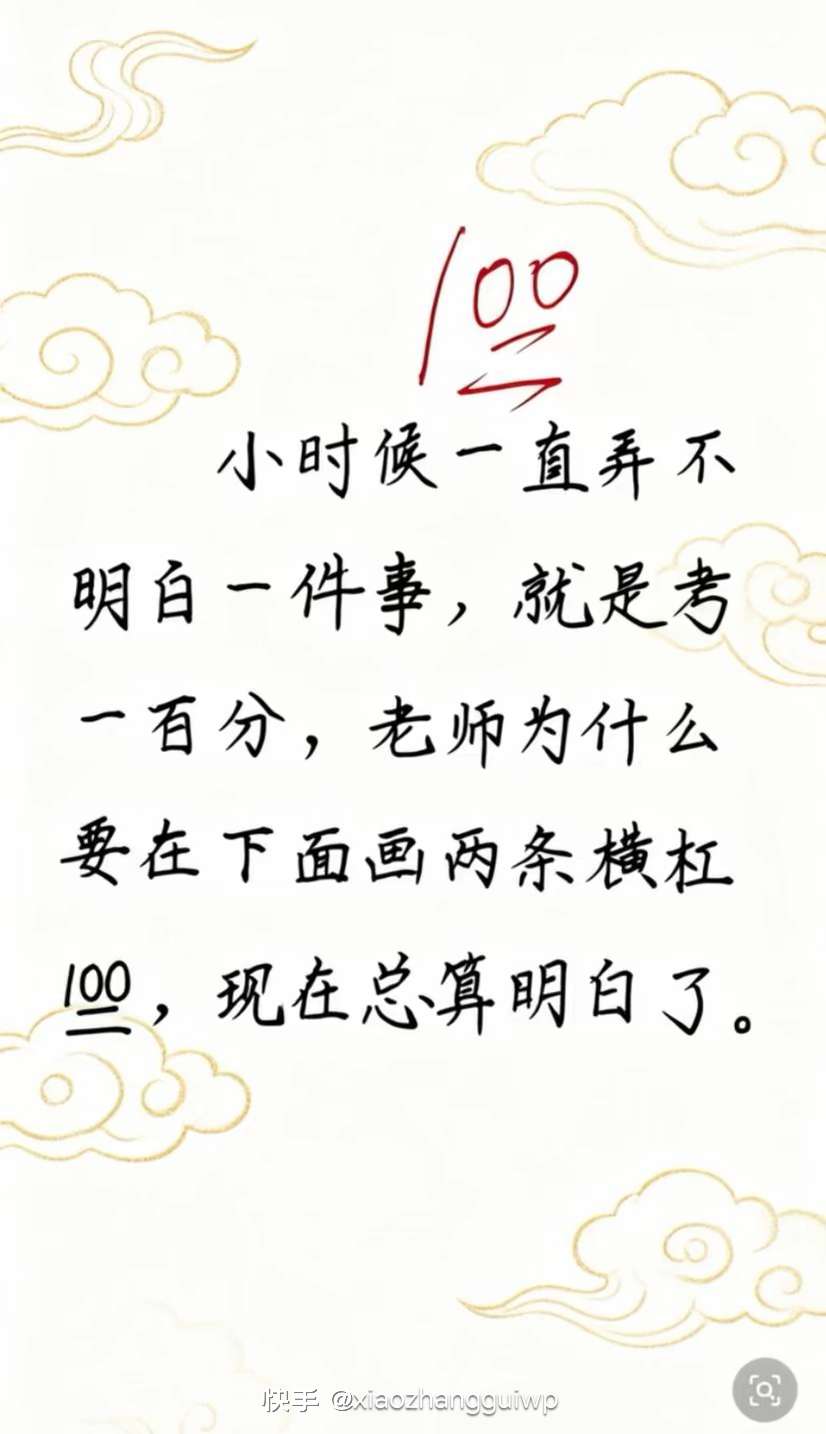 100
小时候一直弄不
明白一件事，就是考
一百分，老师为什么
要在下面画两条横杠
100，现在总算明白了。
快手 @xiaozhangguiwp